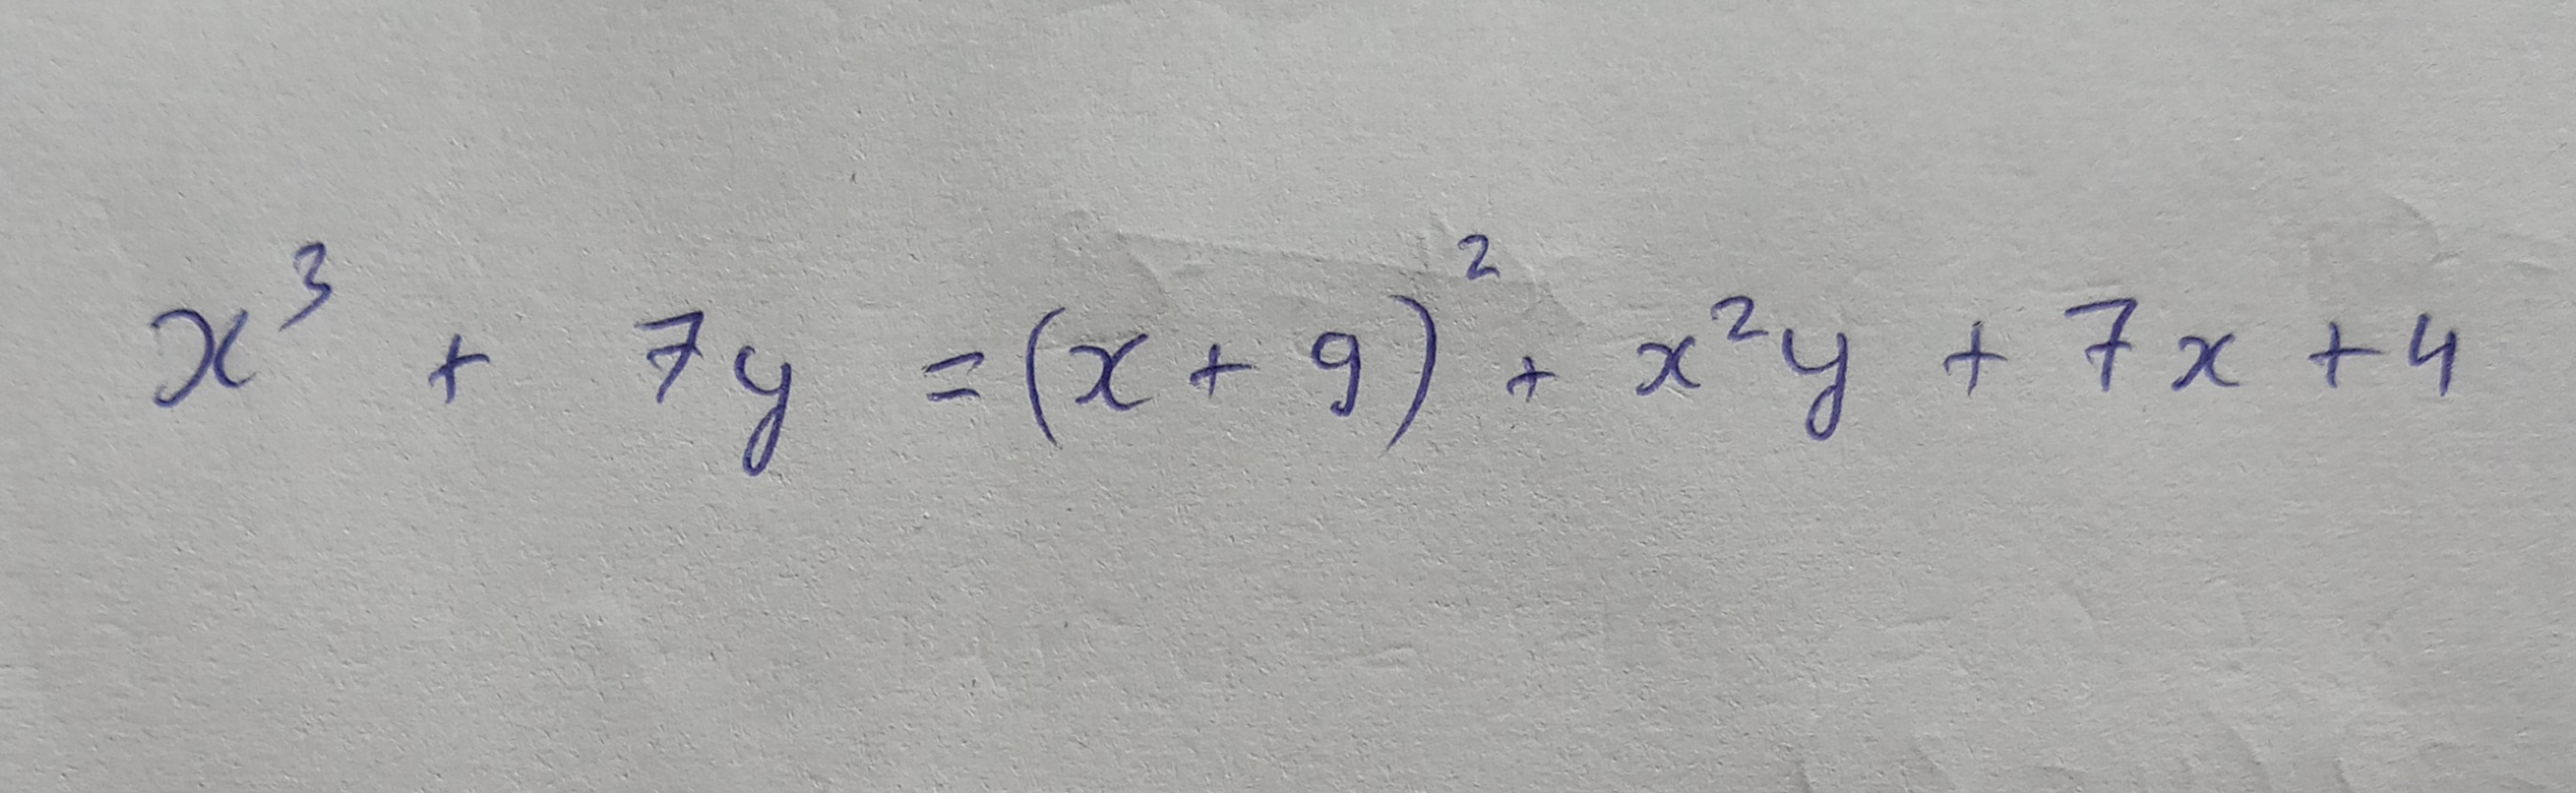 x³ + 7y = (x + 9)² + x²y + 7x + 4